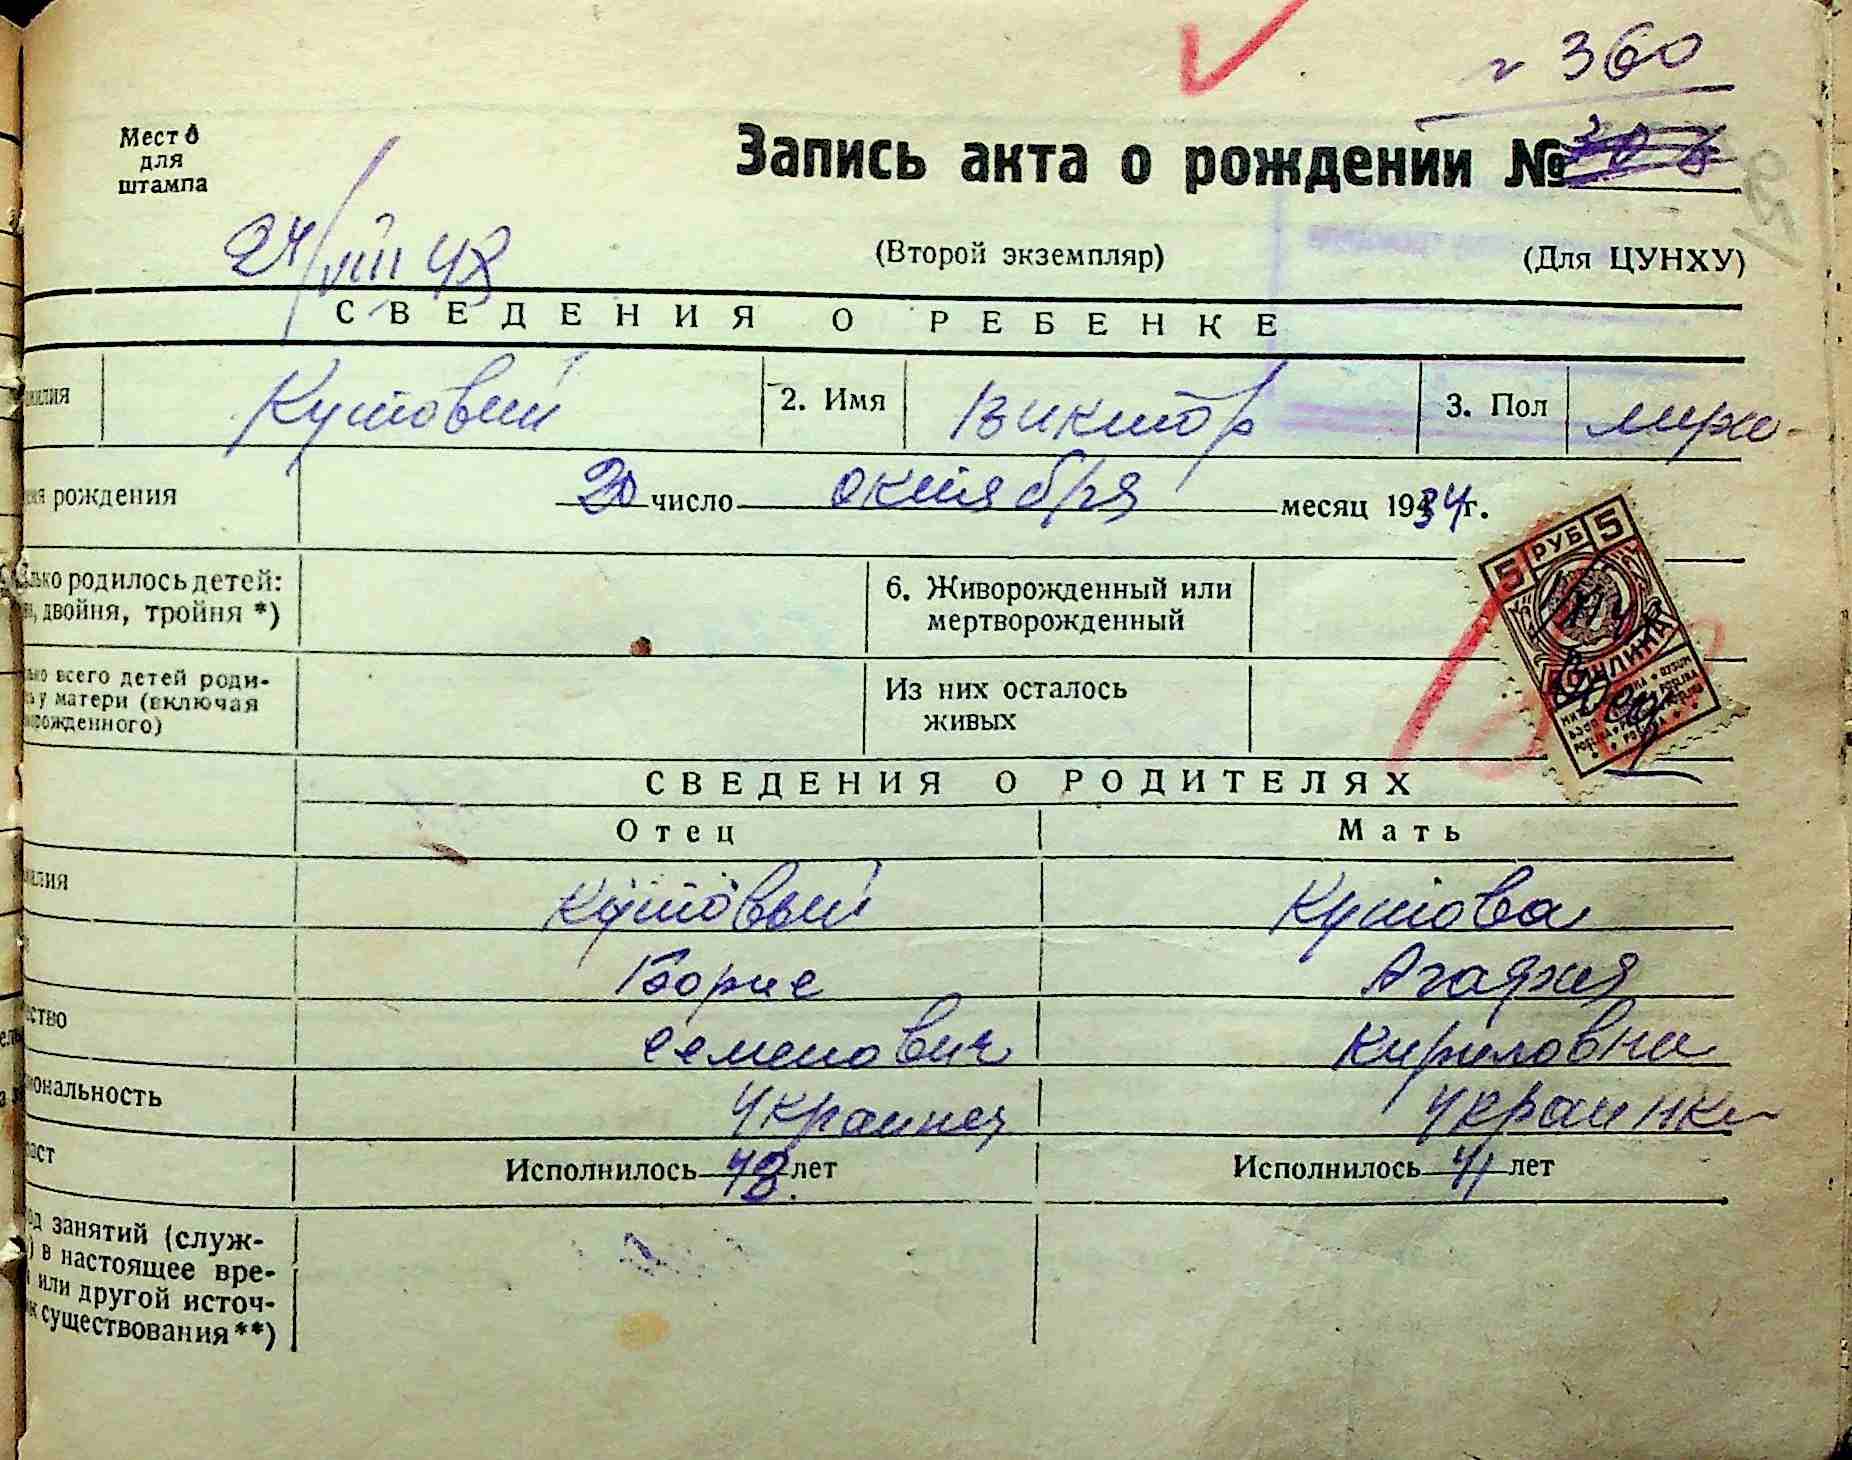 № 360
Место
для
штампа
Запись акта о рождении №
24/VIII 48
(Второй экземпляр)
(Для ЦУНХУ)
СВЕДЕНИЯ О РЕБЕНКЕ
милия Кутовый 2. Имя Виктор 3. Пол мужс-
мя рождения 20 число октября месяц 1934 г.
лько родилось детей:
двойня, тройня *)
6. Живорожденный или
мертворожденный
5 РУБ 5
лько всего детей роди-
сь у матери (включая
ворожденного)
Из них осталось
живых
СВЕДЕНИЯ О РОДИТЕЛЯХ
Отец Мать
милия Кутовый Кутова
Борис Агафия
ество Семенович Кириловна
иональность Украинец Украинка
раст Исполнилось 48 лет Исполнилось 41 лет
од занятий (служ-
) в настоящее вре-
или другой источ-
к существования **)